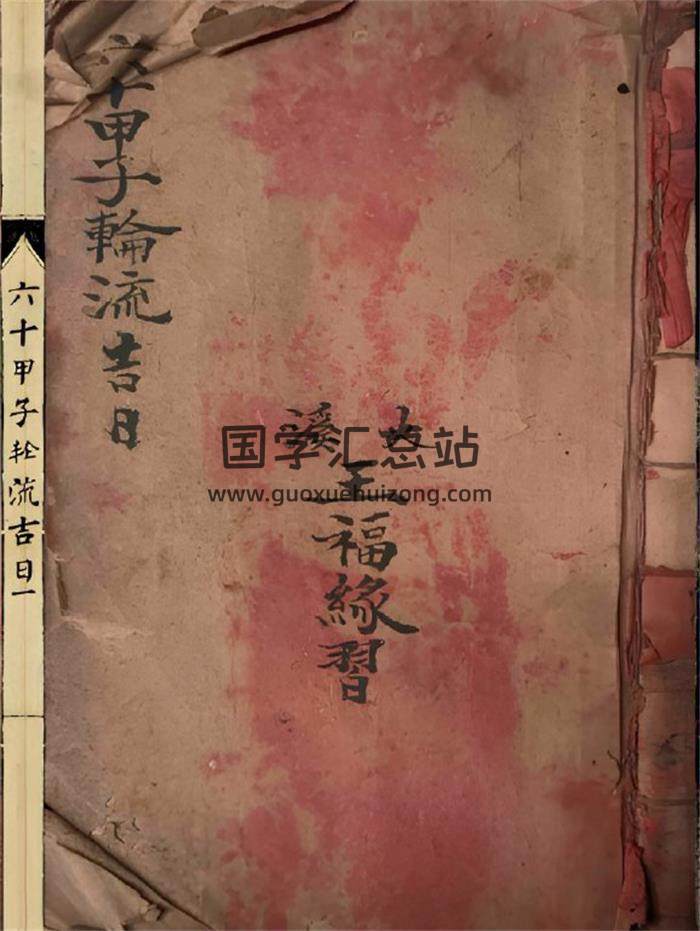 溪
王福緣習
国学汇总站
www.guoxuehuizong.com
六十甲子輪流吉日
六十甲子轮流吉日一